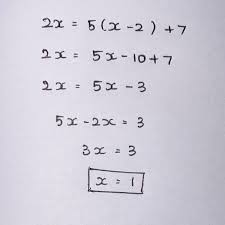 2x = 5(x-2) +7
2x = 5x -10+7
2x = 5x - 3
5x-2x = 3
3x = 3
x = 1